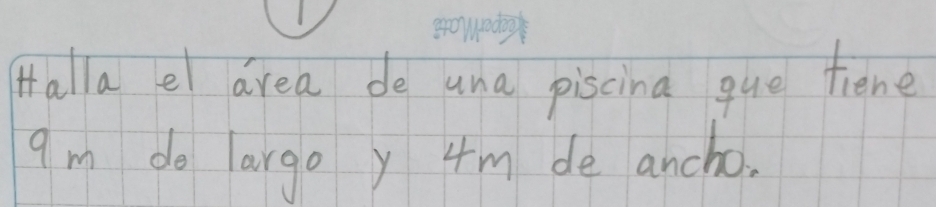 1
KeeperMate
Halla el área de una piscina que tiene
9 m de largo y 4m de ancho.